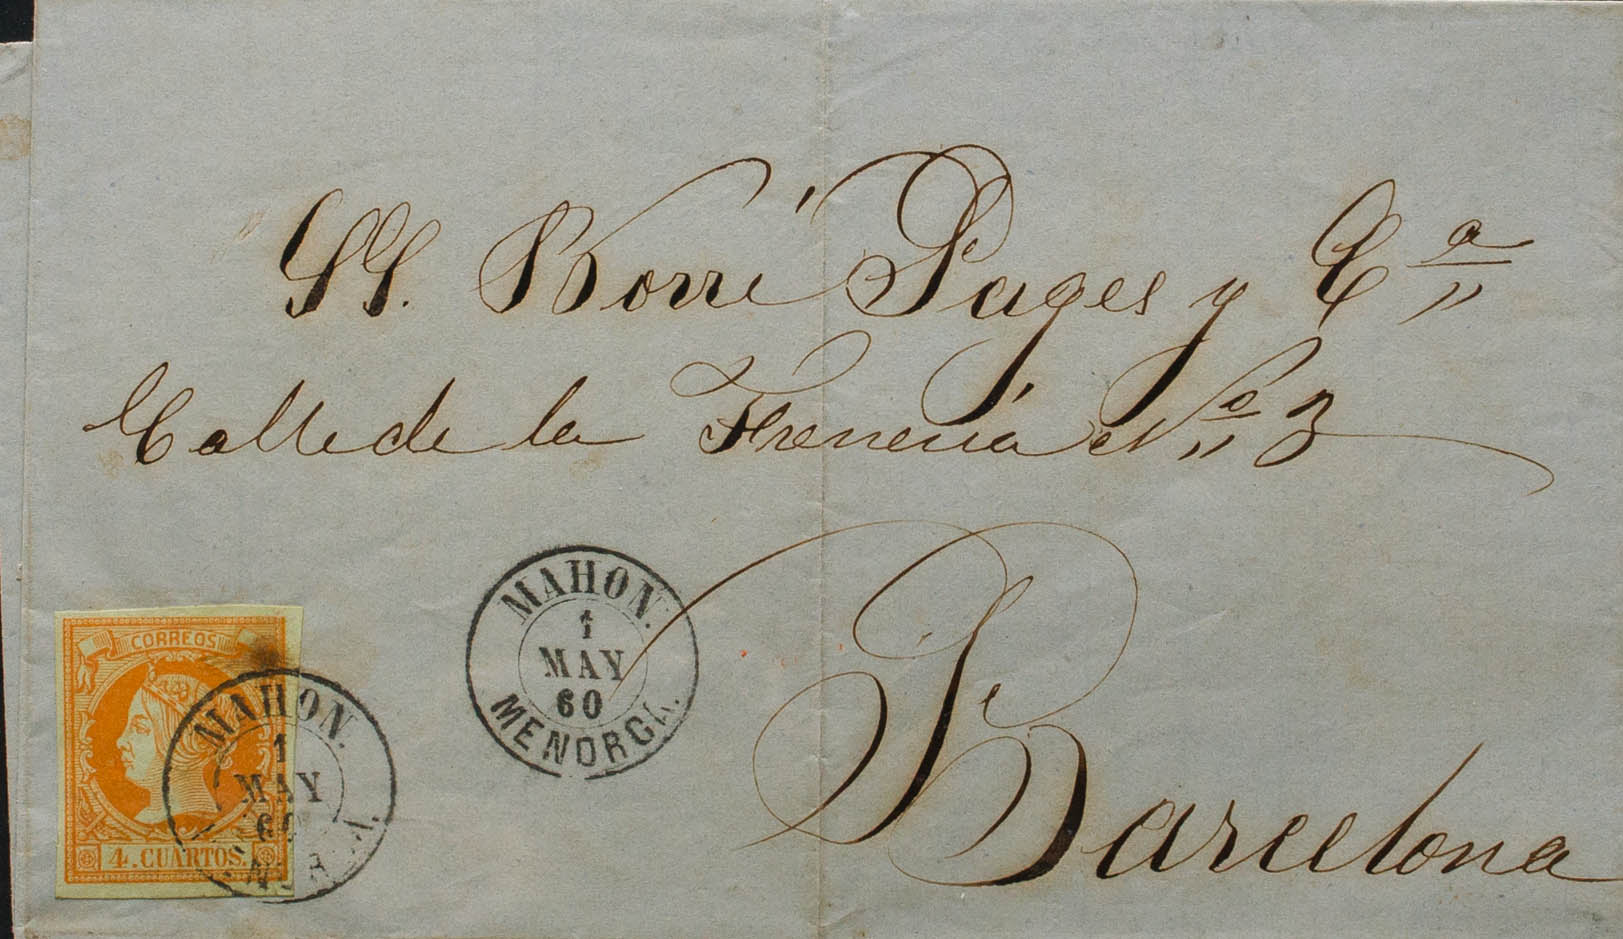 SS. Borré Pages y Cª
Calle de la Freneria Nº 3
Barcelona
MAHON.
1
MAY
60
MENORCA.
CORREOS
4. CUARTOS.
MAHON.
1
MAY
60